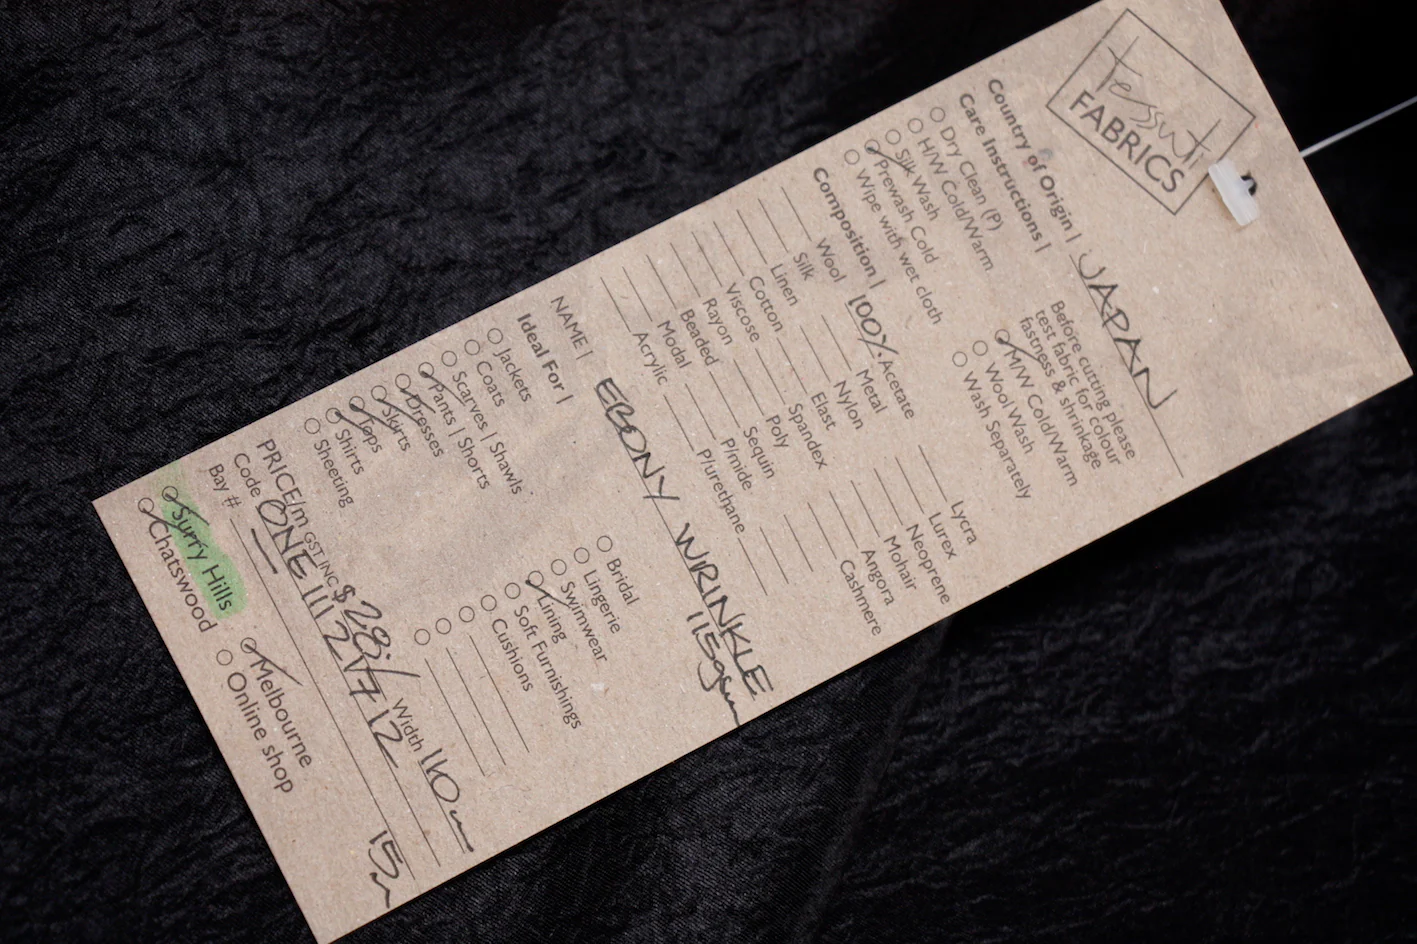 tessuti
FABRICS
Country of Origin | JAPAN
Care Instructions |
Before cutting please
test fabric for colour
fastness & shrinkage
Dry Clean (P)
H/W Cold/Warm
Silk Wash
Prewash Cold
Wipe with wet cloth
M/W Cold/Warm
Wool Wash
Wash Separately
Composition |
Wool
Silk
Linen
Cotton
Viscose
Rayon
Beaded
Modal
Acrylic
100% Acetate
Metal
Nylon
Elast
Spandex
Poly
Sequin
P/mide
P/urethane
Lycra
Lurex
Neoprene
Mohair
Angora
Cashmere
NAME | EBONY WRINKLE
115gsm
Ideal For |
Jackets
Coats
Scarves | Shawls
Pants | Shorts
Dresses
Skirts
Tops
Shirts
Sheeting
Bridal
Lingerie
Swimwear
Lining
Soft Furnishings
Cushions
PRICE/m GST INC $28 Width 110cm
Code ONE 11121712
Bay # 15m
Surry Hills
Chatswood
Melbourne
Online shop